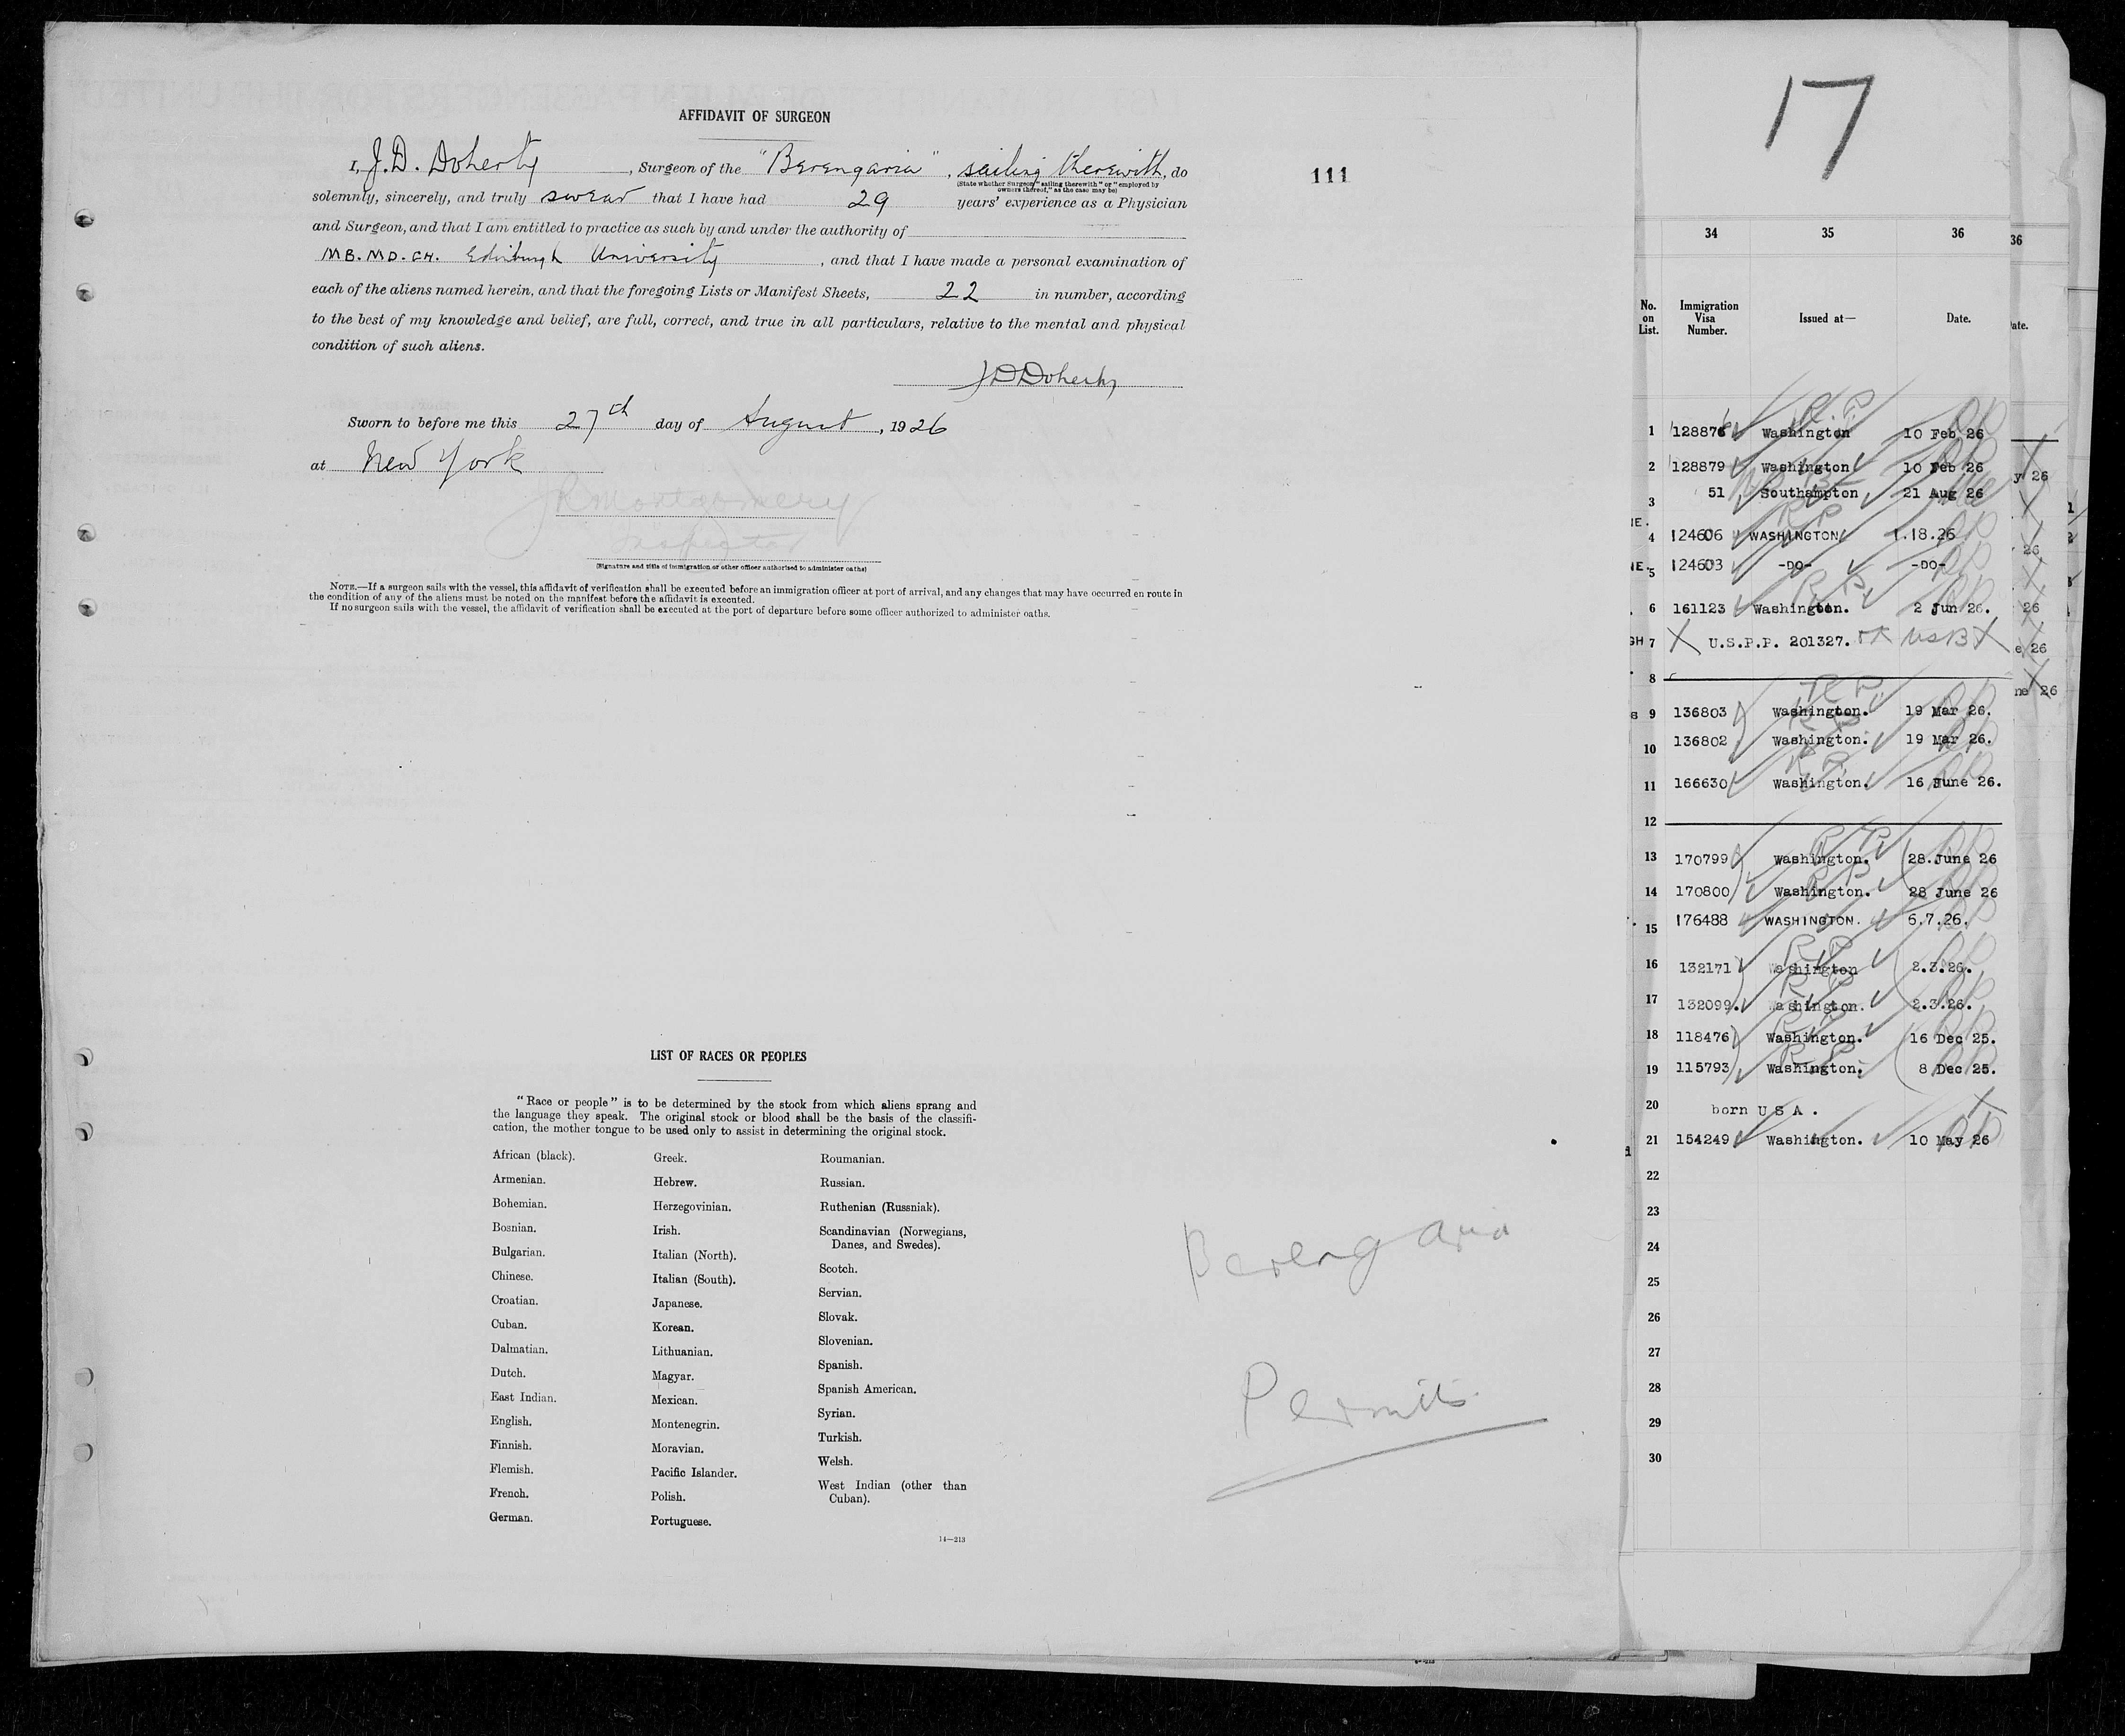 AFFIDAVIT OF SURGEON
I, J. D. Doherty, Surgeon of the "Berengaria", sailing therewith, do
(State whether Surgeon "sailing therewith" or "employed by
owners thereof," as the case may be)
solemnly, sincerely, and truly swear that I have had 29 years' experience as a Physician
and Surgeon, and that I am entitled to practice as such by and under the authority of
MB. MD. CH. Edinburgh University, and that I have made a personal examination of
each of the aliens named herein, and that the foregoing Lists or Manifest Sheets, 22 in number, according
to the best of my knowledge and belief, are full, correct, and true in all particulars, relative to the mental and physical
condition of such aliens.
JDDoherty
Sworn to before me this 27th day of August, 1926
at New York
Montgomery
Inspector
(Signature and title of immigration or other officer authorized to administer oaths)
NOTE.—If a surgeon sails with the vessel, this affidavit of verification shall be executed before an immigration officer at port of arrival, and any changes that may have occurred en route in
the condition of any of the aliens must be noted on the manifest before the affidavit is executed.
If no surgeon sails with the vessel, the affidavit of verification shall be executed at the port of departure before some officer authorized to administer oaths.
111
LIST OF RACES OR PEOPLES
"Race or people" is to be determined by the stock from which aliens sprang and
the language they speak. The original stock or blood shall be the basis of the classifi-
cation, the mother tongue to be used only to assist in determining the original stock.
African (black).
Armenian.
Bohemian.
Bosnian.
Bulgarian.
Chinese.
Croatian.
Cuban.
Dalmatian.
Dutch.
East Indian.
English.
Finnish.
Flemish.
French.
German.
Greek.
Hebrew.
Herzegovinian.
Irish.
Italian (North).
Italian (South).
Japanese.
Korean.
Lithuanian.
Magyar.
Mexican.
Montenegrin.
Moravian.
Pacific Islander.
Polish.
Portuguese.
Roumanian.
Russian.
Ruthenian (Russniak).
Scandinavian (Norwegians,
Danes, and Swedes).
Scotch.
Servian.
Slovak.
Slovenian.
Spanish.
Spanish American.
Syrian.
Turkish.
Welsh.
West Indian (other than
Cuban).
14—213
Berengaria
Permits
17
34 35 36
No. on List. Immigration Visa Number. Issued at— Date.
1 128876 Washington 10 Feb 26
2 128879 Washington 10 Feb 26
3 51 Southampton 21 Aug 26
4 124606 WASHINGTON 1.18.26
5 124603 -DO- -DO-
6 161123 Washington. 2 Jun 26.
7 U.S.P.P. 201327. USB
8
9 136803 Washington. 19 Mar 26.
10 136802 Washington. 19 Mar 26.
11 166630 Washington. 16 June 26.
12
13 170799 Washington. 28.June 26
14 170800 Washington. 28 June 26
15 176488 WASHINGTON. 6.7.26.
16 132171 Washington 2.3.26.
17 132099. Washington. 2.3.26.
18 118476 Washington. 16 Dec 25.
19 115793 Washington. 8 Dec 25.
20 born U S A.
21 154249 Washington. 10 May 26
22
23
24
25
26
27
28
29
30
36